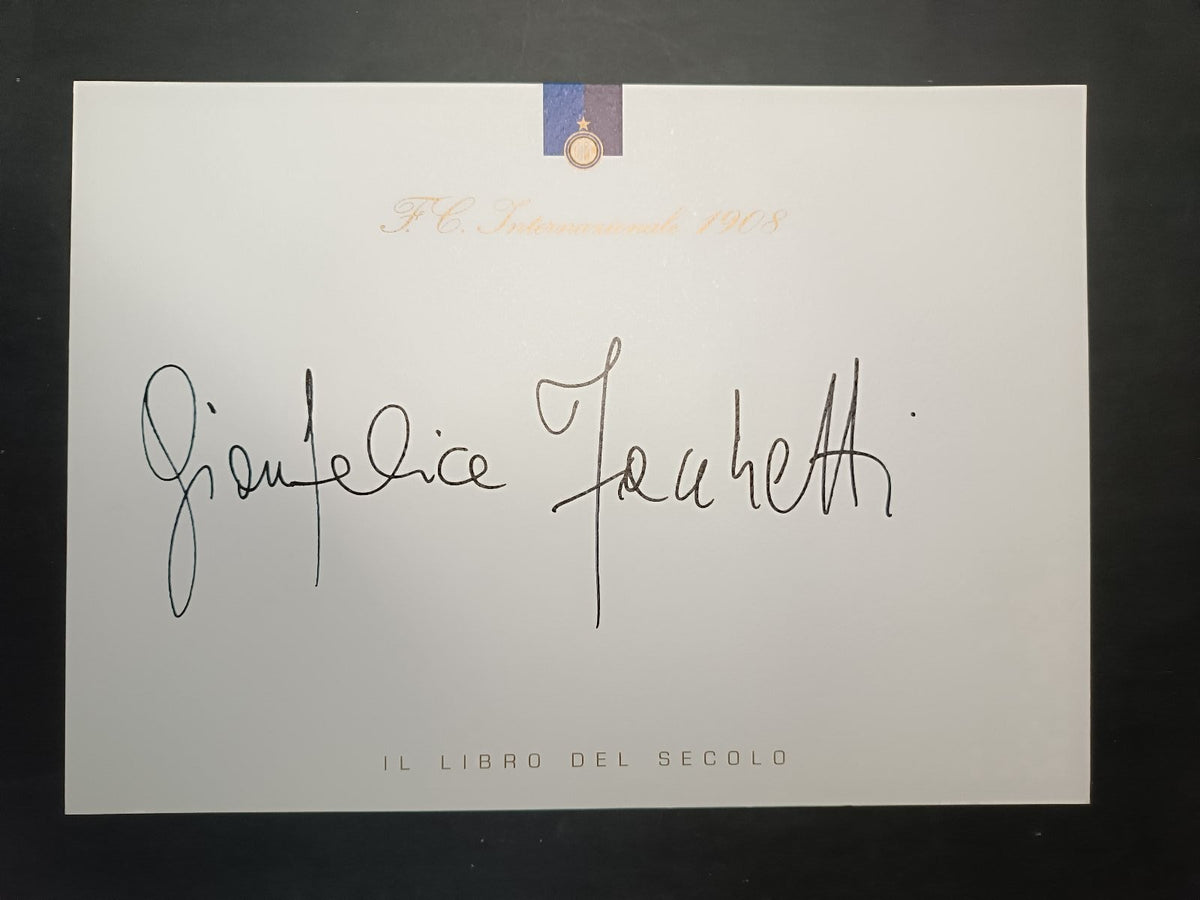 F.C. Internazionale 1908
Gianfelice Facchetti
IL LIBRO DEL SECOLO